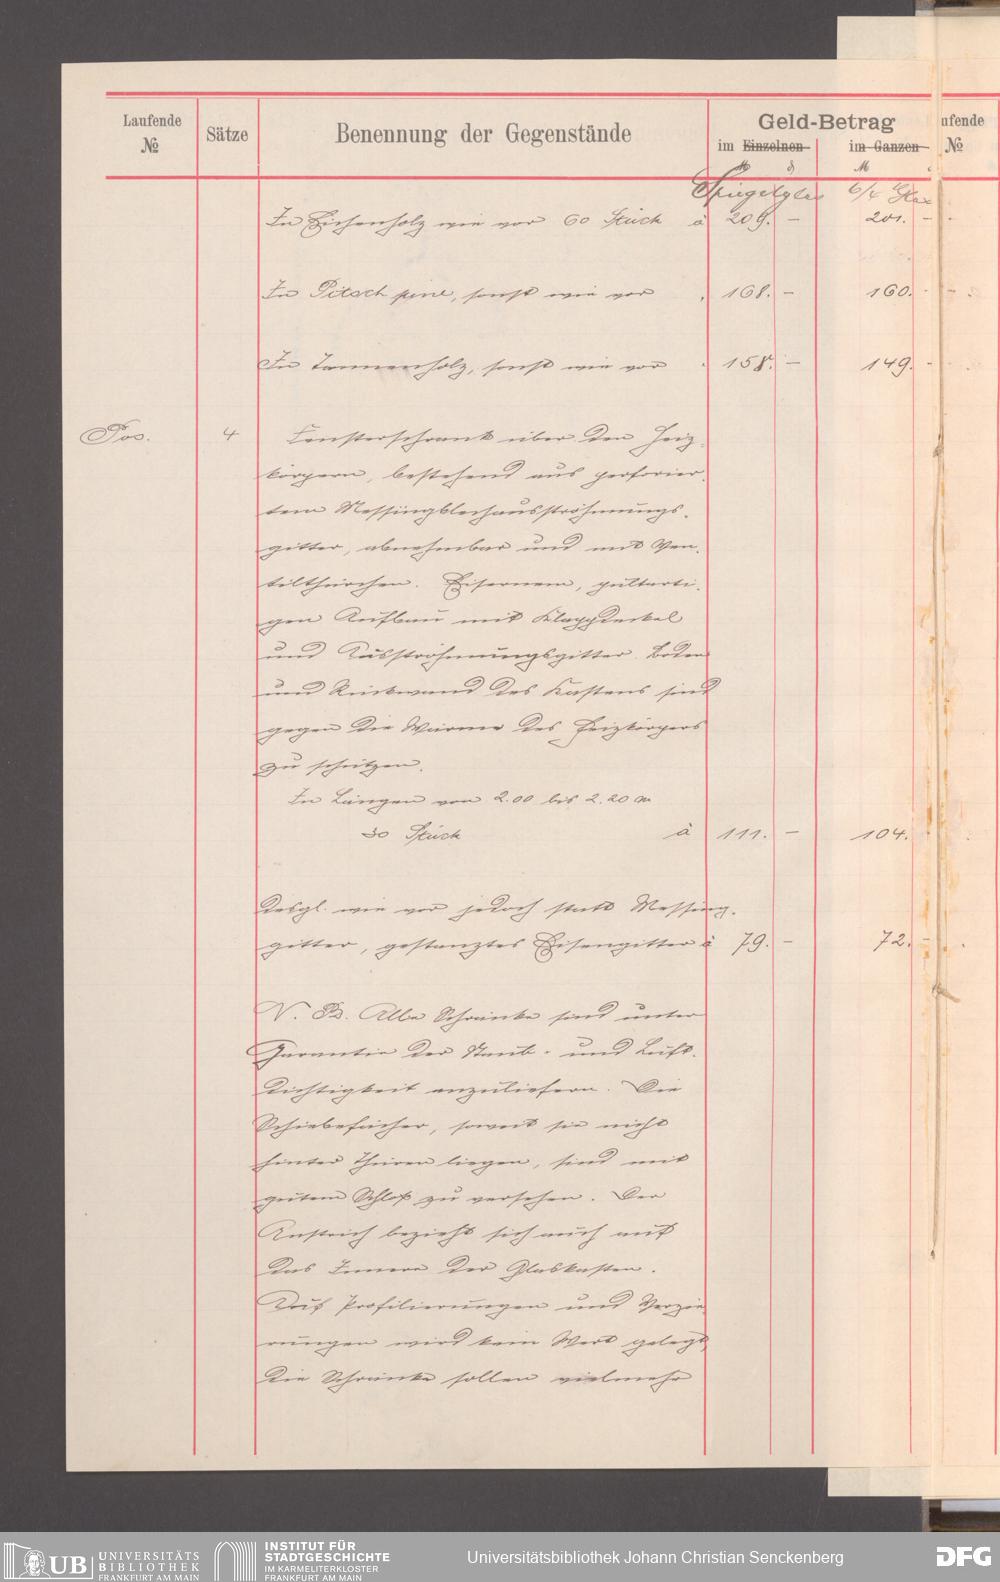 Laufende
№
Sätze
Benennung der Gegenstände
Geld-Betrag
im Einzelnen
im Ganzen
ufende
№
M
₰
M
Spiegelglas
6/4 Glas
In Eichenholz wie vor 60 Stück à 209. – 201. –
In Pitsch pine, sonst wie vor 168. – 160. –
In Tannenholz, sonst wie vor 158. – 149. –
Pos. 4 Fensterschrank über den Heiz-
körpern, bestehend aus perforier-
tem Messingblechausströhmungs-
gitter, abnehmbar und mit Ven-
tilthürchen. Eisernem, pultarti-
gen Aufbau mit Klappdeckel
und Ausströhmungsgitter. Boden
und Rückwand des Kastens sind
gegen die Wärme des Heizkörpers
zu schützen.
In Längen von 2.00 bis 2.20 m
30 Stück à 111. – 104. –
Desgl. wie vor jedoch statt Messing-
gitter, gestanztes Eisengitter à 79. – 72. –
N. B. Alle Schränke sind unter
Garantie der Staub- und Luft-
dichtigkeit anzuliefern. Die
Schiebefächer, soweit sie nicht
hinter Thüren liegen, sind mit
gutem Schloß zu versehen. Der
Anstrich bezieht sich auch auf
das Innere der Glaskasten.
Auf Profilierungen und Verzie-
rungen wird kein Wert gelegt,
die Schränke sollen vielmehr
UB UNIVERSITÄTS
BIBLIOTHEK
FRANKFURT AM MAIN
INSTITUT FÜR
STADTGESCHICHTE
IM KARMELITERKLOSTER
FRANKFURT AM MAIN
Universitätsbibliothek Johann Christian Senckenberg
DFG